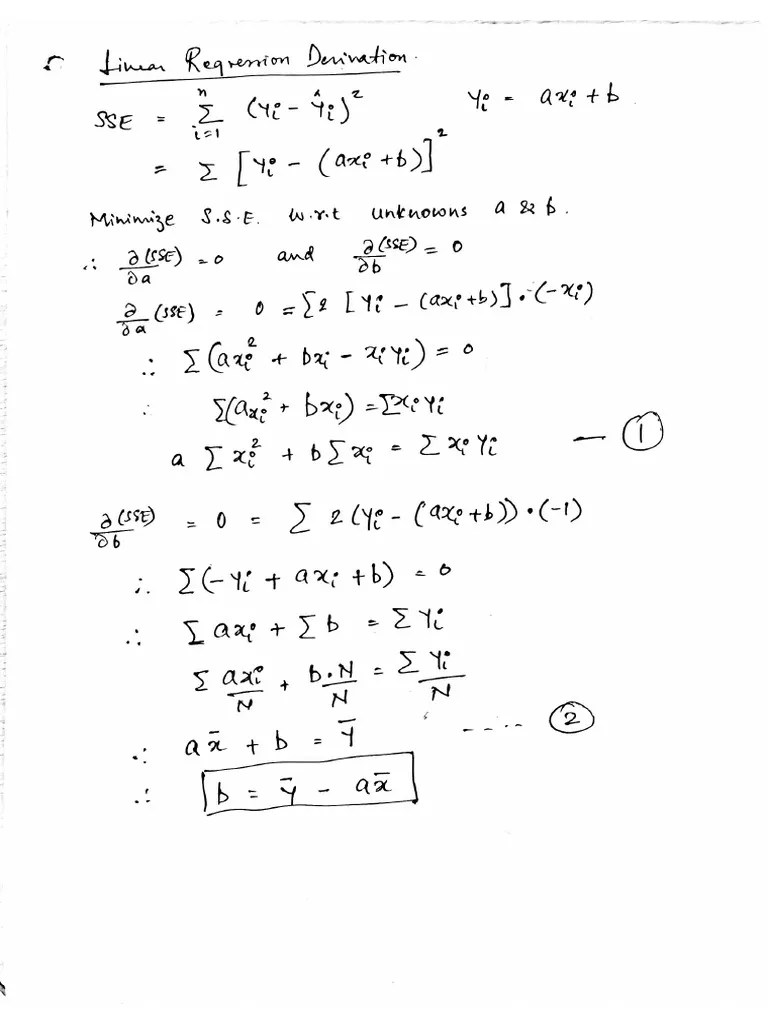 Linear Regression Derivation.
SSE = n Σ i=1 (Yi - Ŷi)² Yi = axi + b
= Σ [Yi - (axi + b)]²
Minimize S.S.E. w.r.t unknowns a & b.
∴ ∂(SSE)/∂a = 0 and ∂(SSE)/∂b = 0
∂/∂a (SSE) = 0 = Σ2 [Yi - (axi + b)] · (-xi)
∴ Σ(axi² + bxi - xiYi) = 0
∴ Σ(axi² + bxi) = ΣxiYi
a Σxi² + bΣxi = ΣxiYi — ①
∂(SSE)/∂b = 0 = Σ 2(Yi - (axi + b)) · (-1)
∴ Σ(-Yi + axi + b) = 0
∴ Σaxi + Σb = ΣYi
Σ axi/N + b·N/N = Σ Yi/N
∴ ax̄ + b = Ȳ ----- ②
∴ b = Ȳ - ax̄